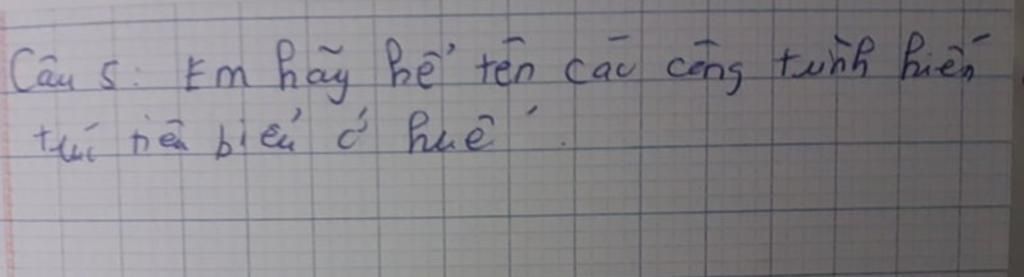 Câu 5: Em hãy kể tên các công trình kiến
trúc tiêu biểu ở huế.